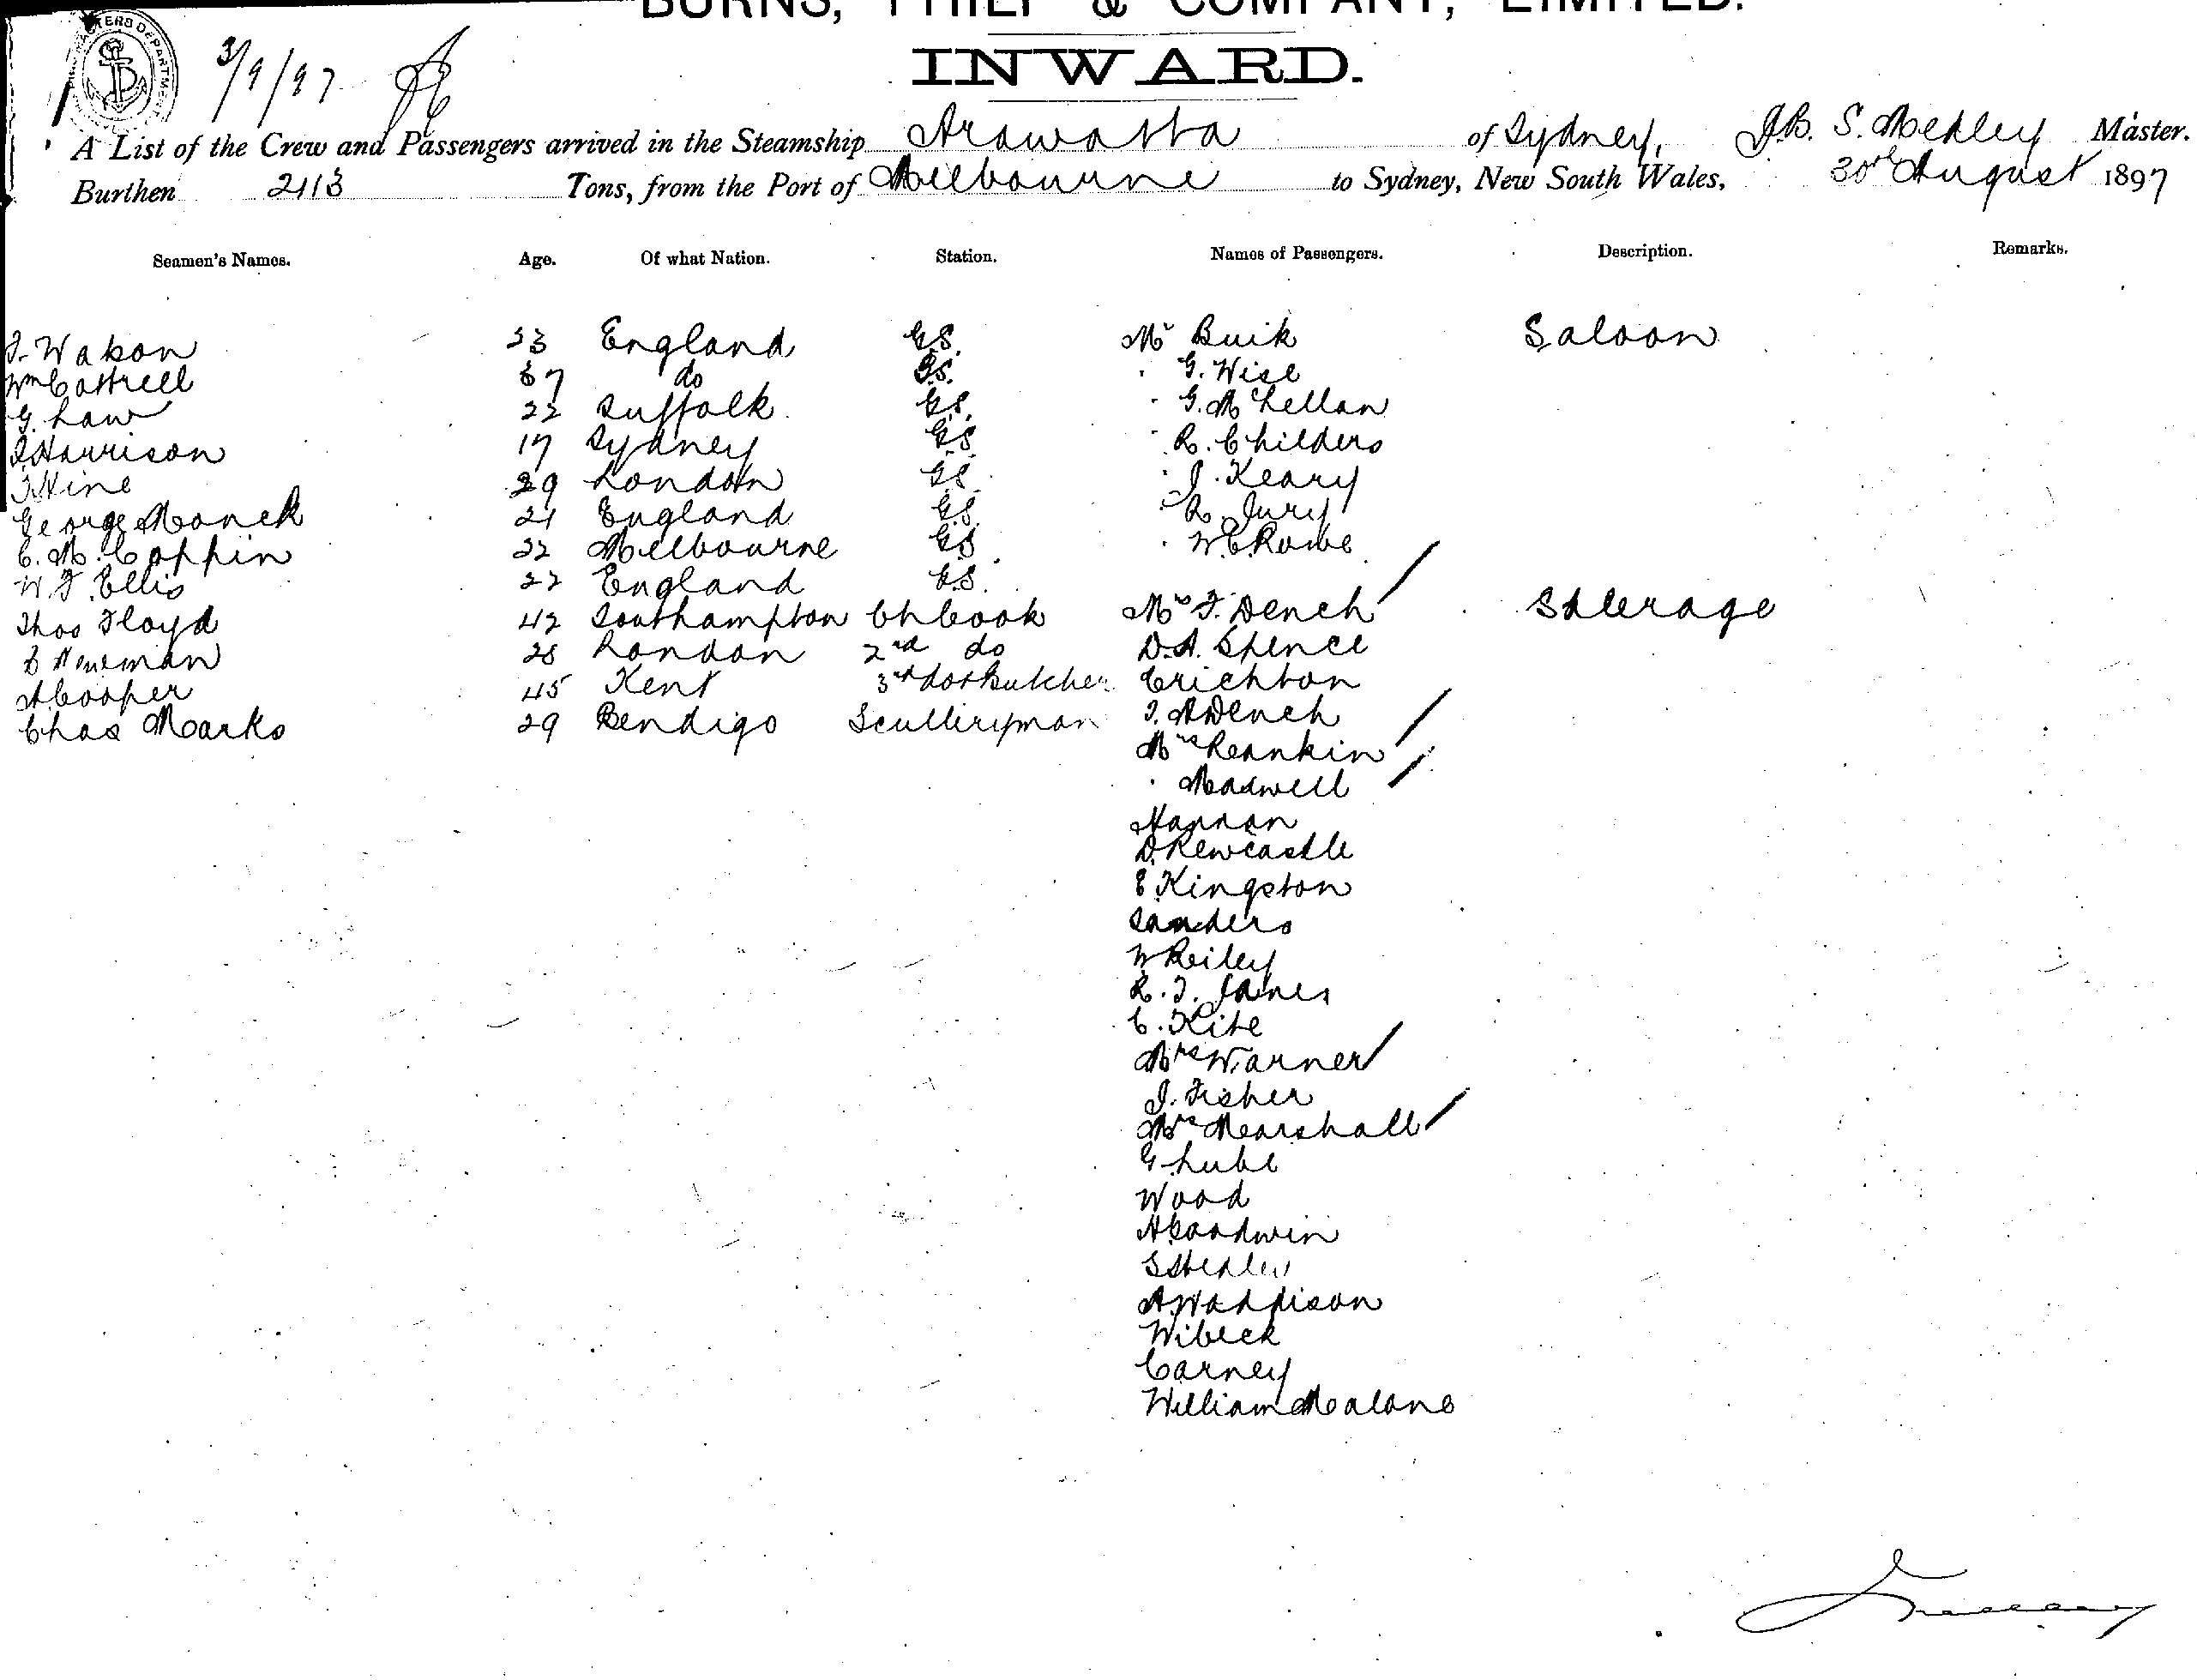 BURNS, PHILP & COMPANY, LIMITED.
INWARD.
3/9/97
A List of the Crew and Passengers arrived in the Steamship Arawatta of Sydney, J.B. S. Medley Master.
Burthen 2113 Tons, from the Port of Melbourne to Sydney, New South Wales, 30th August 1897
Seamen's Names. Age. Of what Nation. Station. Names of Passengers. Description. Remarks.
23 England G.S. Mr Buik Saloon
Wm Cottrell 67 do G.S. " G. Wise
G. Law 22 Suffolk G.S. " G. McLellan
J Harrison 17 Sydney G.S. " R. Childers
29 London G.S. " J. Keary
George Monck 21 England G.S. " R. Jury
C. M. Coppin 22 Melbourne G.S. " W.E. Rowe
W. F. Ellis 22 England G.S.
Thos Floyd 42 Southampton Ch Cook Mrs F. Dench Steerage
Newman 28 London 2nd do D.A. Spence
A Cooper 45 Kent 3rd do & Butcher Crichton
Chas Marks 29 Bendigo Sculleryman Dench
Mrs Rankin
" Maxwell
Hannan
D. Newcastle
E Kingston
Sanders
W Reiley
R. J. James
C. Kite
Mrs Warner
J. Fisher
Mrs Marshall
G Lube
Wood
A Goodwin
S Hedley
A. Waddison
Wibeck
Carney
William Malone